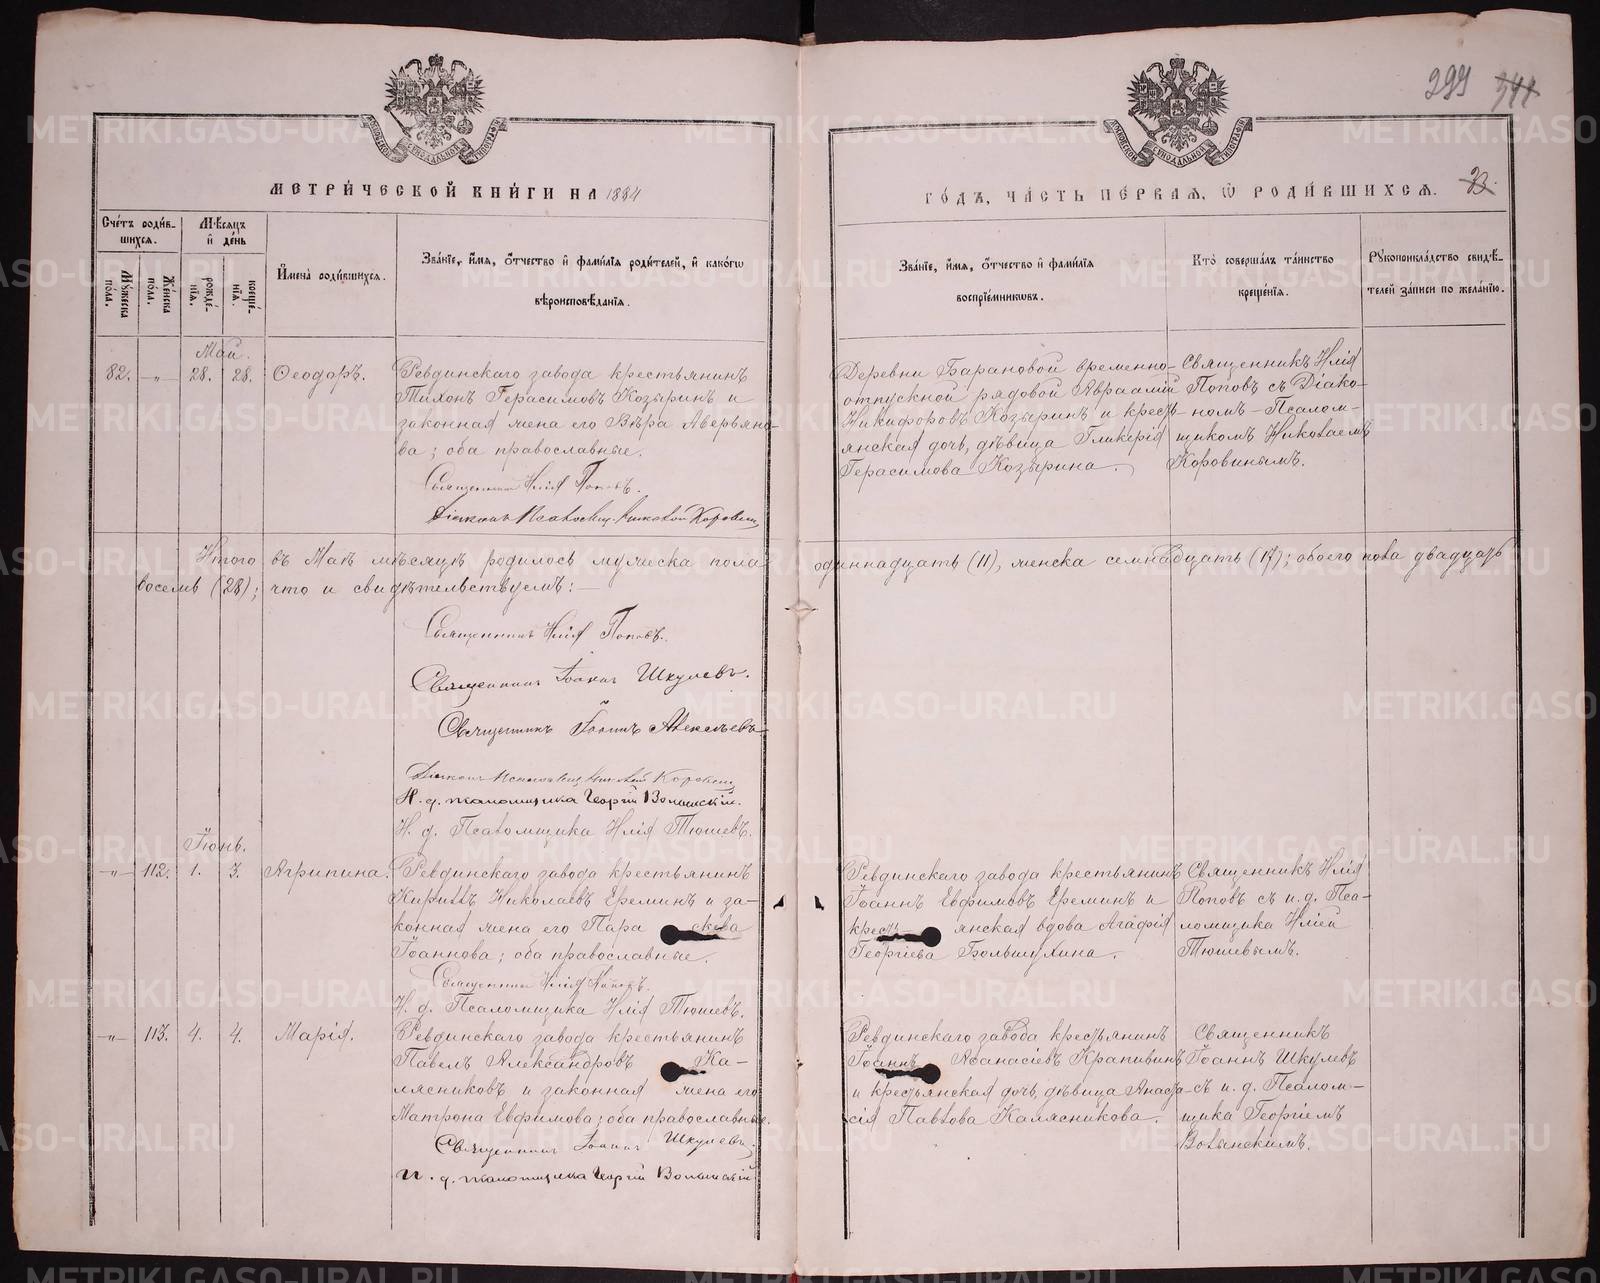 299 344
МЕТРИ́ЧЕСКОЙ КНИ́ГИ НА 1884
ГО́ДЪ, ЧА́СТЬ ПЕ́РВАЯ, Ѡ҆ РОДИ́ВШИХСЯ. 33.
Сче́тъ роди́в-
шихся.
Мѣ́сяцъ
и҆ де́нь
Мꙋ́жеска по́ла.
Же́нска по́ла.
рожде́-нїя.
креще́-нїя.
И҆мена̀ роди́вшихся.
Зва́нїе, и҆́мя, ѻ҆́тчество и҆ фами́лїя роди́телей, и҆ како́гѡ
вѣроисповѣ́данїя.
Зва́нїе, и҆́мя, ѻ҆́тчество и҆ фами́лїя
воспрїе́мникѡвъ.
Кто̀ соверша́лъ та́инство
креще́нїя.
Рꙋкоприкла́дство свидѣ́-
телей за́писи по жела́нїю.
Май.
82. —„— 28. 28. Ѳеодоръ.
Ревдинскаго завода крестьянинъ
Тихонъ Герасимовъ Козыринъ и
законная жена его Вѣра Аверьяно-
ва; оба православные.
Священникъ Илія Поповъ.
Діаконъ Псаломщ. Николай Коровинъ
Деревни Барановой временно-
отпускной рядовой Авраамій
Никифоровъ Козыринъ и кресть-
янская дочь, дѣвица Гликерія
Герасимова Козырина.
Священникъ Илія
Поповъ съ Діако-
номъ-Псалом-
щикомъ Николаемъ
Коровинымъ.
Итого въ Маѣ мѣсяцѣ родилось мужеска пола одиннадцать (11), женска семнадцать (17); обоего пола двадцать
восемь (28); что и свидѣтельствуемъ:—
Священникъ Илія Поповъ.
Священникъ Іоаннъ Шкулевъ.
Священникъ Іоаннъ Алексѣевъ
Діаконъ Псаломщикъ Николай Коровинъ
И. д. псаломщика Георгій Волынскій.
И. д. Псаломщика Илія Тюшевъ.
Іюнь.
—„— 112. 1. 3. Агрипина.
Ревдинскаго завода крестьянинъ
Кириллъ Николаевъ Ереминъ и за-
конная жена его Пара скева
Іоаннова; оба православные.
Священникъ Илія Поповъ.
И. д. Псаломщика Илія Тюшевъ.
Ревдинскаго завода крестьянинъ
Іоаннъ Евфимовъ Ереминъ и
кресть- янская вдова Агафія
Георгіева Большухина.
Священникъ Илія
Поповъ съ и. д. Пса-
ломщика Иліей
Тюшевымъ.
—„— 113. 4. 4. Марія.
Ревдинскаго завода крестьянинъ
Павелъ Александровъ Ка-
лясниковъ и законная жена его
Матрона Евфимова; оба православные.
Священникъ Іоаннъ Шкулевъ.
И. д. псаломщика Георгій Волынскій
Ревдинскаго завода крестьянинъ
Іоаннъ Аѳанасіевъ Крапивинъ
и крестьянская дочь, дѣвица Анаста-
сія Павлова Калясникова.
Священникъ
Іоаннъ Шкулевъ
съ и. д. Псалом-
щика Георгіемъ
Волынскимъ.
METRIKI.GASO-URAL.RU